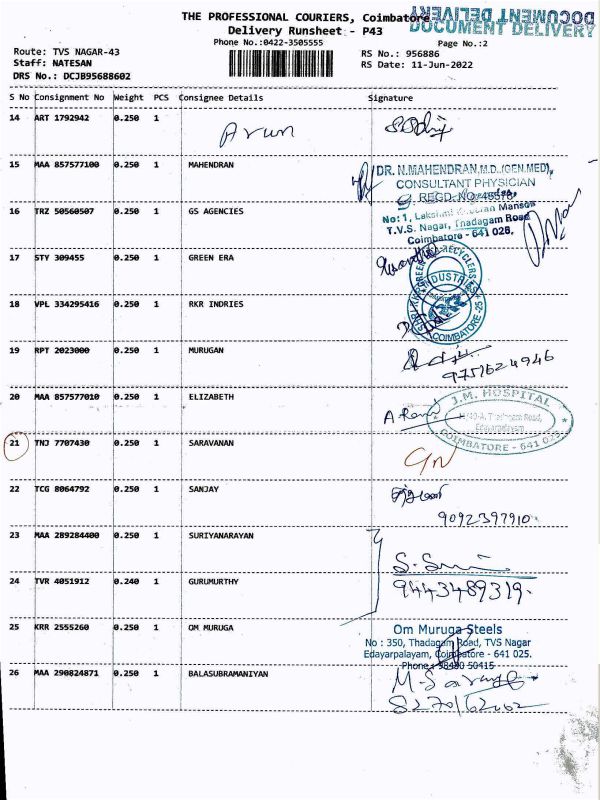 THE PROFESSIONAL COURIERS, Coimbatore
DOCUMENT DELIVERY
DOCUMENT DELIVERY
Delivery Runsheet - P43
Phone No.:0422-3505555
Page No.:2
Route: TVS NAGAR-43
RS No.: 956886
Staff: NATESAN
RS Date: 11-Jun-2022
DRS No.: DCJB95688602
S No Consignment No Weight PCS Consignee Details Signature
14 ART 1792942 0.250 1 Arun
15 MAA 857577100 0.250 1 MAHENDRAN
DR. N.MAHENDRAN,M.D.,(GEN.MED),
CONSULTANT PHYSICIAN
REGD. NO:
16 TRZ 50560507 0.250 1 GS AGENCIES
No: 1, Lakshmi Mansion
T.V.S. Nagar, Thadagam Road
Coimbatore - 641 028.
17 STY 309455 0.250 1 GREEN ERA
GREEN RECYCLERS
INDUSTRIES
COIMBATORE -25
18 VPL 334295416 0.250 1 RKR INDRIES
19 RPT 2023000 0.250 1 MURUGAN
9751624946
20 MAA 857577010 0.250 1 ELIZABETH
J.M. HOSPITAL
Thadagam Road,
Edayarpalayam
COIMBATORE - 641 025
21 TNJ 7707430 0.250 1 SARAVANAN
22 TCG 8064792 0.250 1 SANJAY
9092397910
23 MAA 289284400 0.250 1 SURIYANARAYAN
24 TVR 4051912 0.240 1 GURUMURTHY
9443489319.
25 KRR 2555260 0.250 1 OM MURUGA
Om Muruga Steels
No : 350, Thadagam Road, TVS Nagar
Edayarpalayam, Coimbatore - 641 025.
Phone : 98430 50415
26 MAA 290824871 0.250 1 BALASUBRAMANIYAN
8270162002